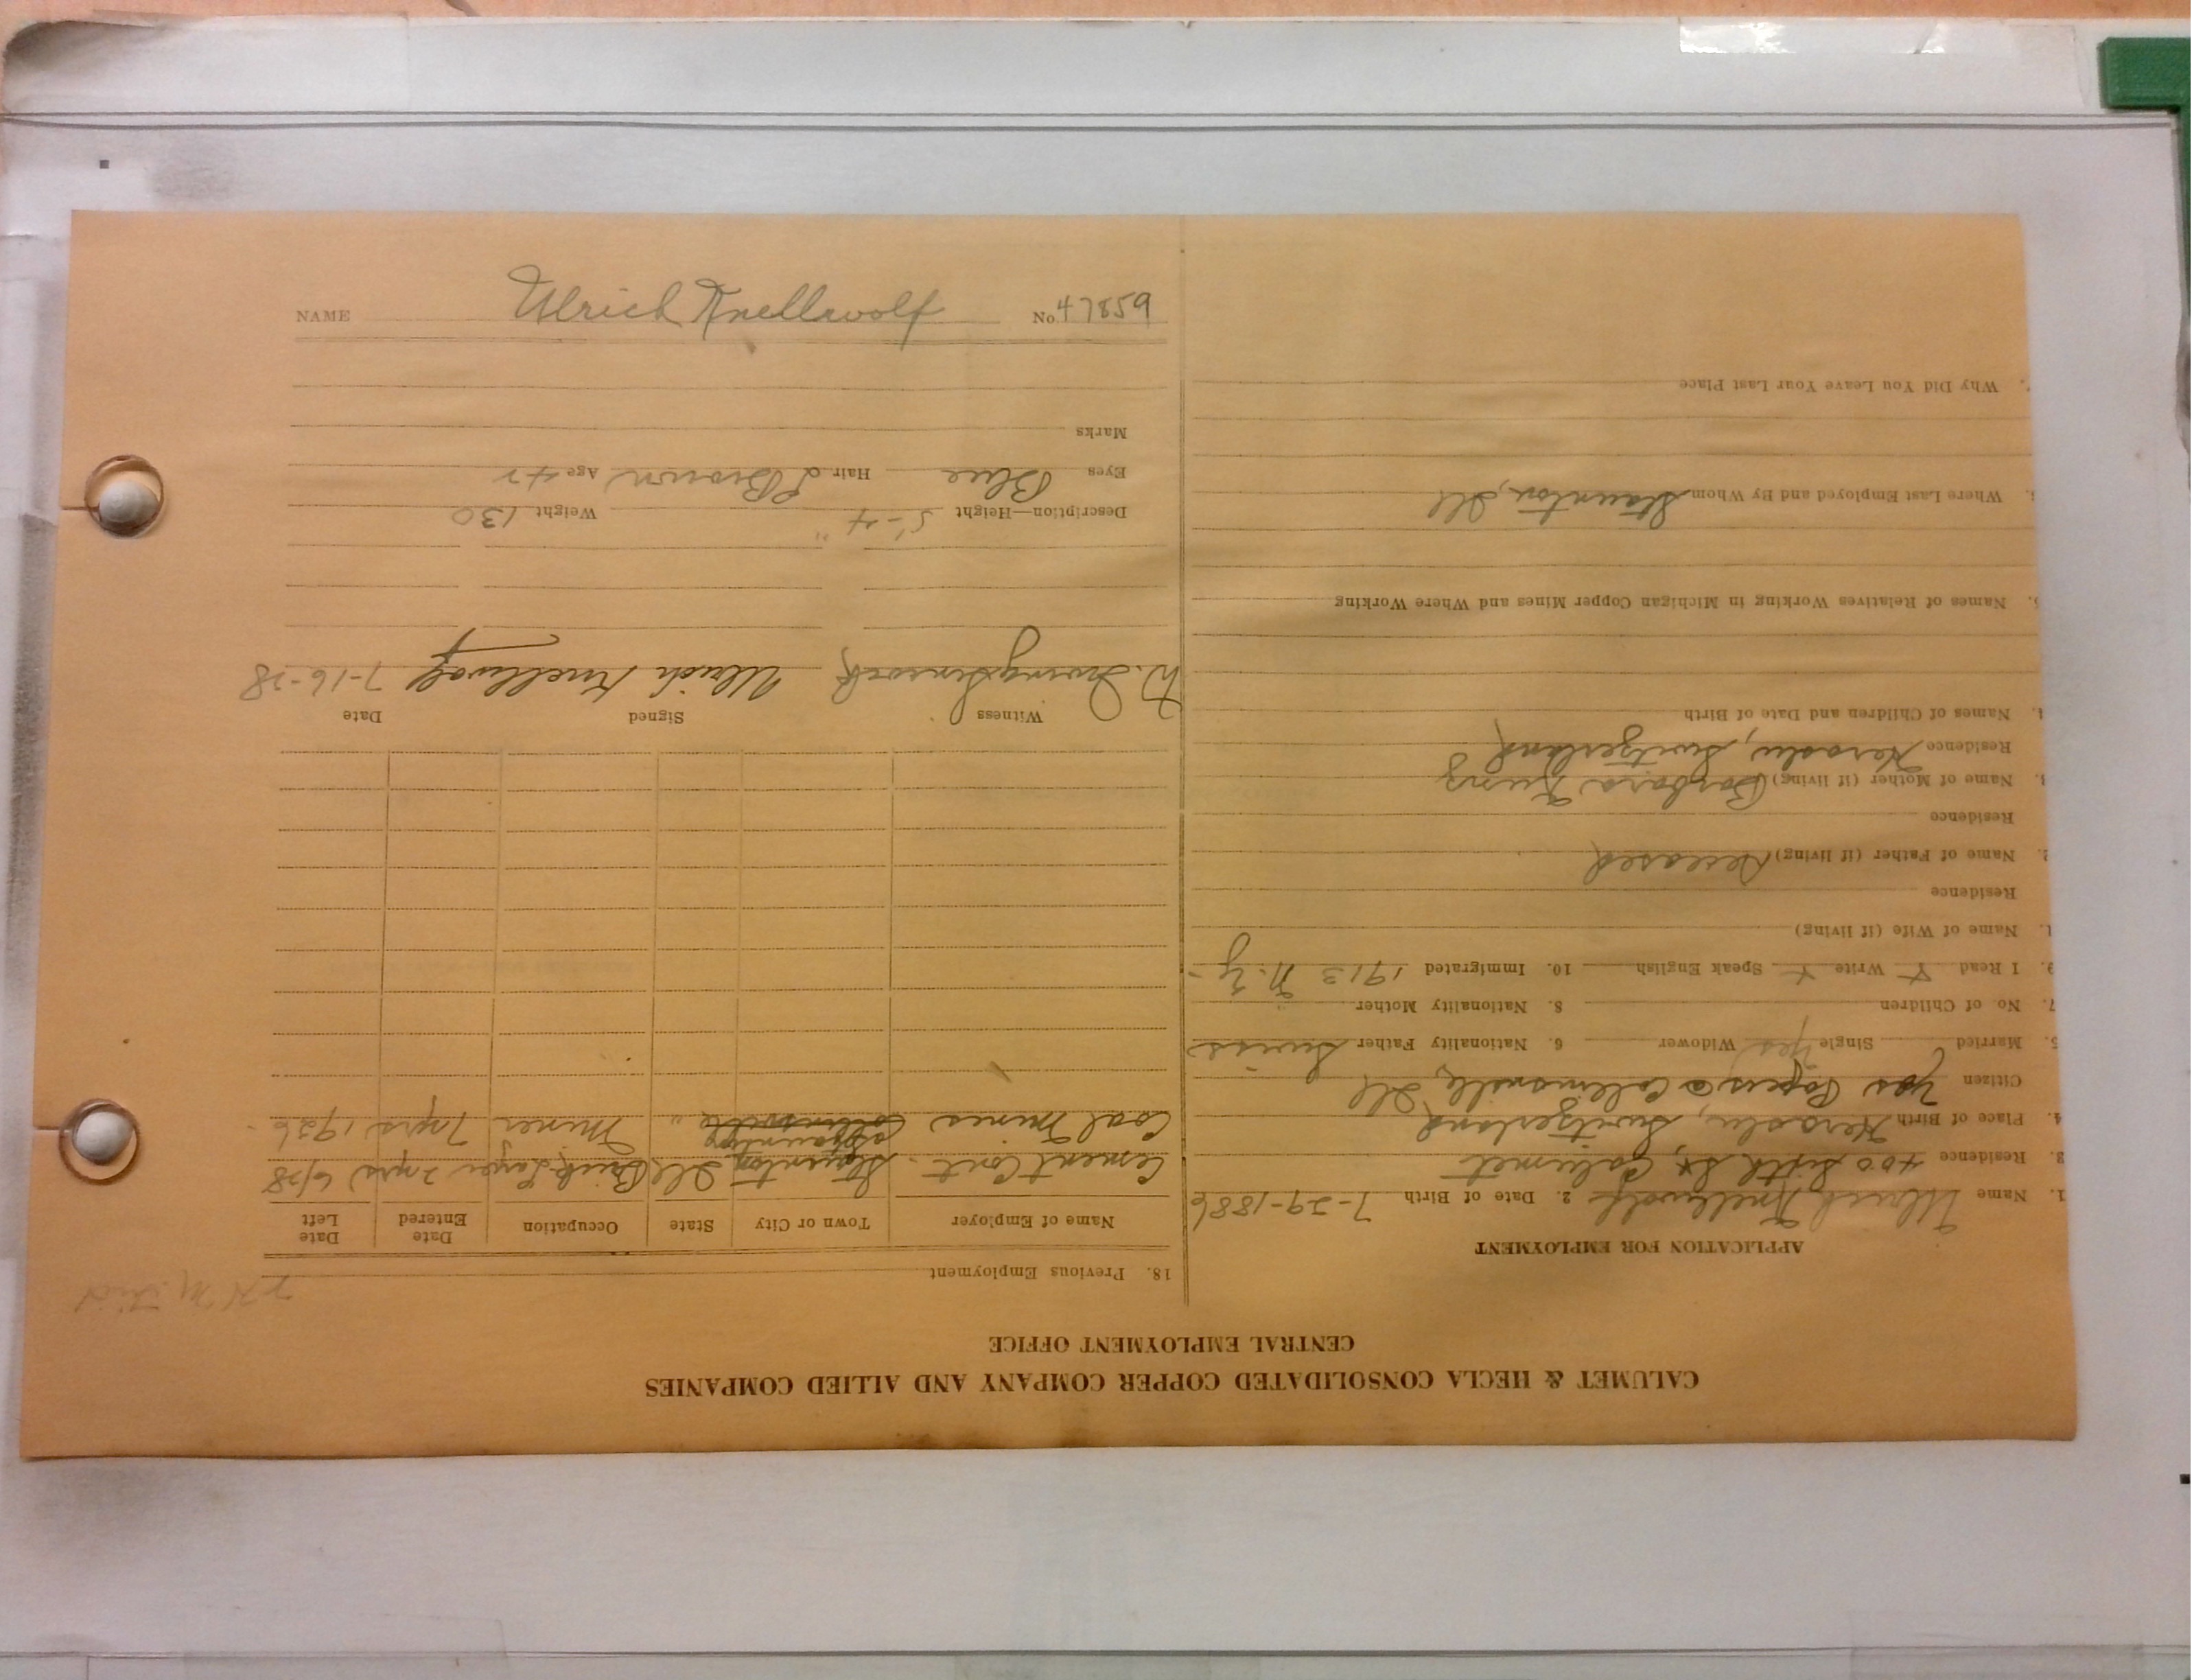 CALUMET & HECLA CONSOLIDATED COPPER COMPANY AND ALLIED COMPANIES
CENTRAL EMPLOYMENT OFFICE
APPLICATION FOR EMPLOYMENT
1. Name Ulrich Knellwolf 2. Date of Birth 7-29-1886
3. Residence 400 Fifth St, Calumet
4. Place of Birth Heroslu, Switzerland
Citizen Yes Papers @ Collinsville, Ill
5. Married Single Yes Widower 6. Nationality Father Swiss
7. No. of Children 8. Nationality Mother "
9. I Read X Write X Speak English 10. Immigrated 1913 N.Y-
1. Name of Wife (if living)
Residence
2. Name of Father (if living) Deceased
Residence
3. Name of Mother (if living) Barbara Kunz
Residence Heroslu, Switzerland
4. Names of Children and Date of Birth
5. Names of Relatives Working in Michigan Copper Mines and Where Working
6. Where Last Employed and By Whom Staunton, Ill
7. Why Did You Leave Your Last Place
18. Previous Employment
Name of Employer Town or City State Occupation Date Entered Date Left
Cement Cont. Staunton Ill Brick Layer 2 yrs 6/28
Staunton
Coal Mines Collinsville " Miner 7 yrs 1926-
Witness Signed Date
Ulrich Knellwolf 7-16-28
Description—Height 5'-4" Weight 130
Eyes Blue Hair L Brown Age 42
Marks
NAME Ulrich Knellwolf No 47859